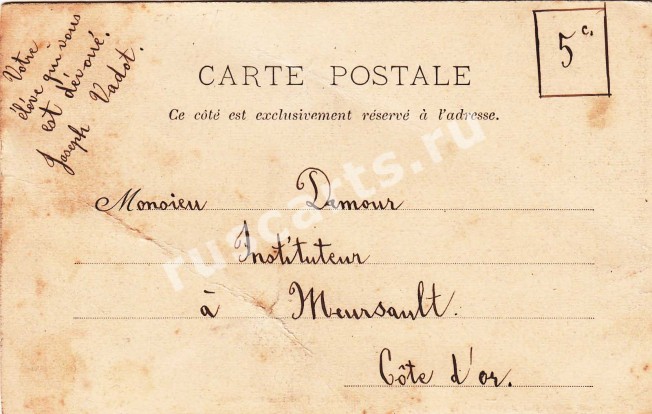 Votre
élève qui vous
est dévoué.
Joseph Vadot.
5 c.
CARTE POSTALE
Ce côté est exclusivement réservé à l'adresse.
Monsieu Damour
Instituteur
à Meursault.
Côte d'or.
ruscarts.ru